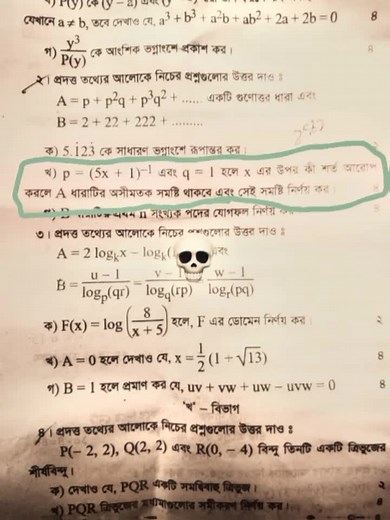 যেখানে a ≠ b, তবে দেখাও যে, a³ + b³ + a²b + ab² + 2a + 2b = 0 8
গ) y³/P(y) কে আংশিক ভগ্নাংশে প্রকাশ কর।
২। প্রদত্ত তথ্যের আলোকে নিচের প্রশ্নগুলোর উত্তর দাও ঃ
A = p + p²q + p³q² + ...... একটি গুণোত্তর ধারা এবং
B = 2 + 22 + 222 + .........
ক) 5.1̇23̇ কে সাধারণ ভগ্নাংশে রূপান্তর কর।
খ) p = (5x + 1)⁻¹ এবং q = 1 হলে x এর উপর কী শর্ত আরোপ
করলে A ধারাটির অসীমতক সমষ্টি থাকবে এবং সেই সমষ্টি নির্ণয় কর।
n সংখ্যক পদের যোগফল নির্ণয়
৩। প্রদত্ত তথ্যের আলোকে নিচের প্রশ্নগুলোর উত্তর দাও ঃ
A = 2 logₖx − logₖ( এবং
B = (u − 1)/logₚ(qr) = (v − 1)/log_q(rp) = (w − 1)/logᵣ(pq)
ক) F(x) = log (8/(x + 5)) হলে, F এর ডোমেন নির্ণয় কর। ২
খ) A = 0 হলে দেখাও যে, x = 1/2 (1 + √13) 8
গ) B = 1 হলে প্রমাণ কর যে, uv + vw + uw − uvw = 0 8
'খ' – বিভাগ
৪। প্রদত্ত তথ্যের আলোকে নিচের প্রশ্নগুলোর উত্তর দাও ঃ
P(− 2, 2), Q(2, 2) এবং R(0, − 4) বিন্দু তিনটি একটি ত্রিভুজের
শীর্ষবিন্দু।
ক) দেখাও যে, PQR একটি সমদ্বিবাহু ত্রিভুজ। ২
খ) PQR ত্রিভুজের মধ্যমাগুলোর সমীকরণ নির্ণয় কর। 8